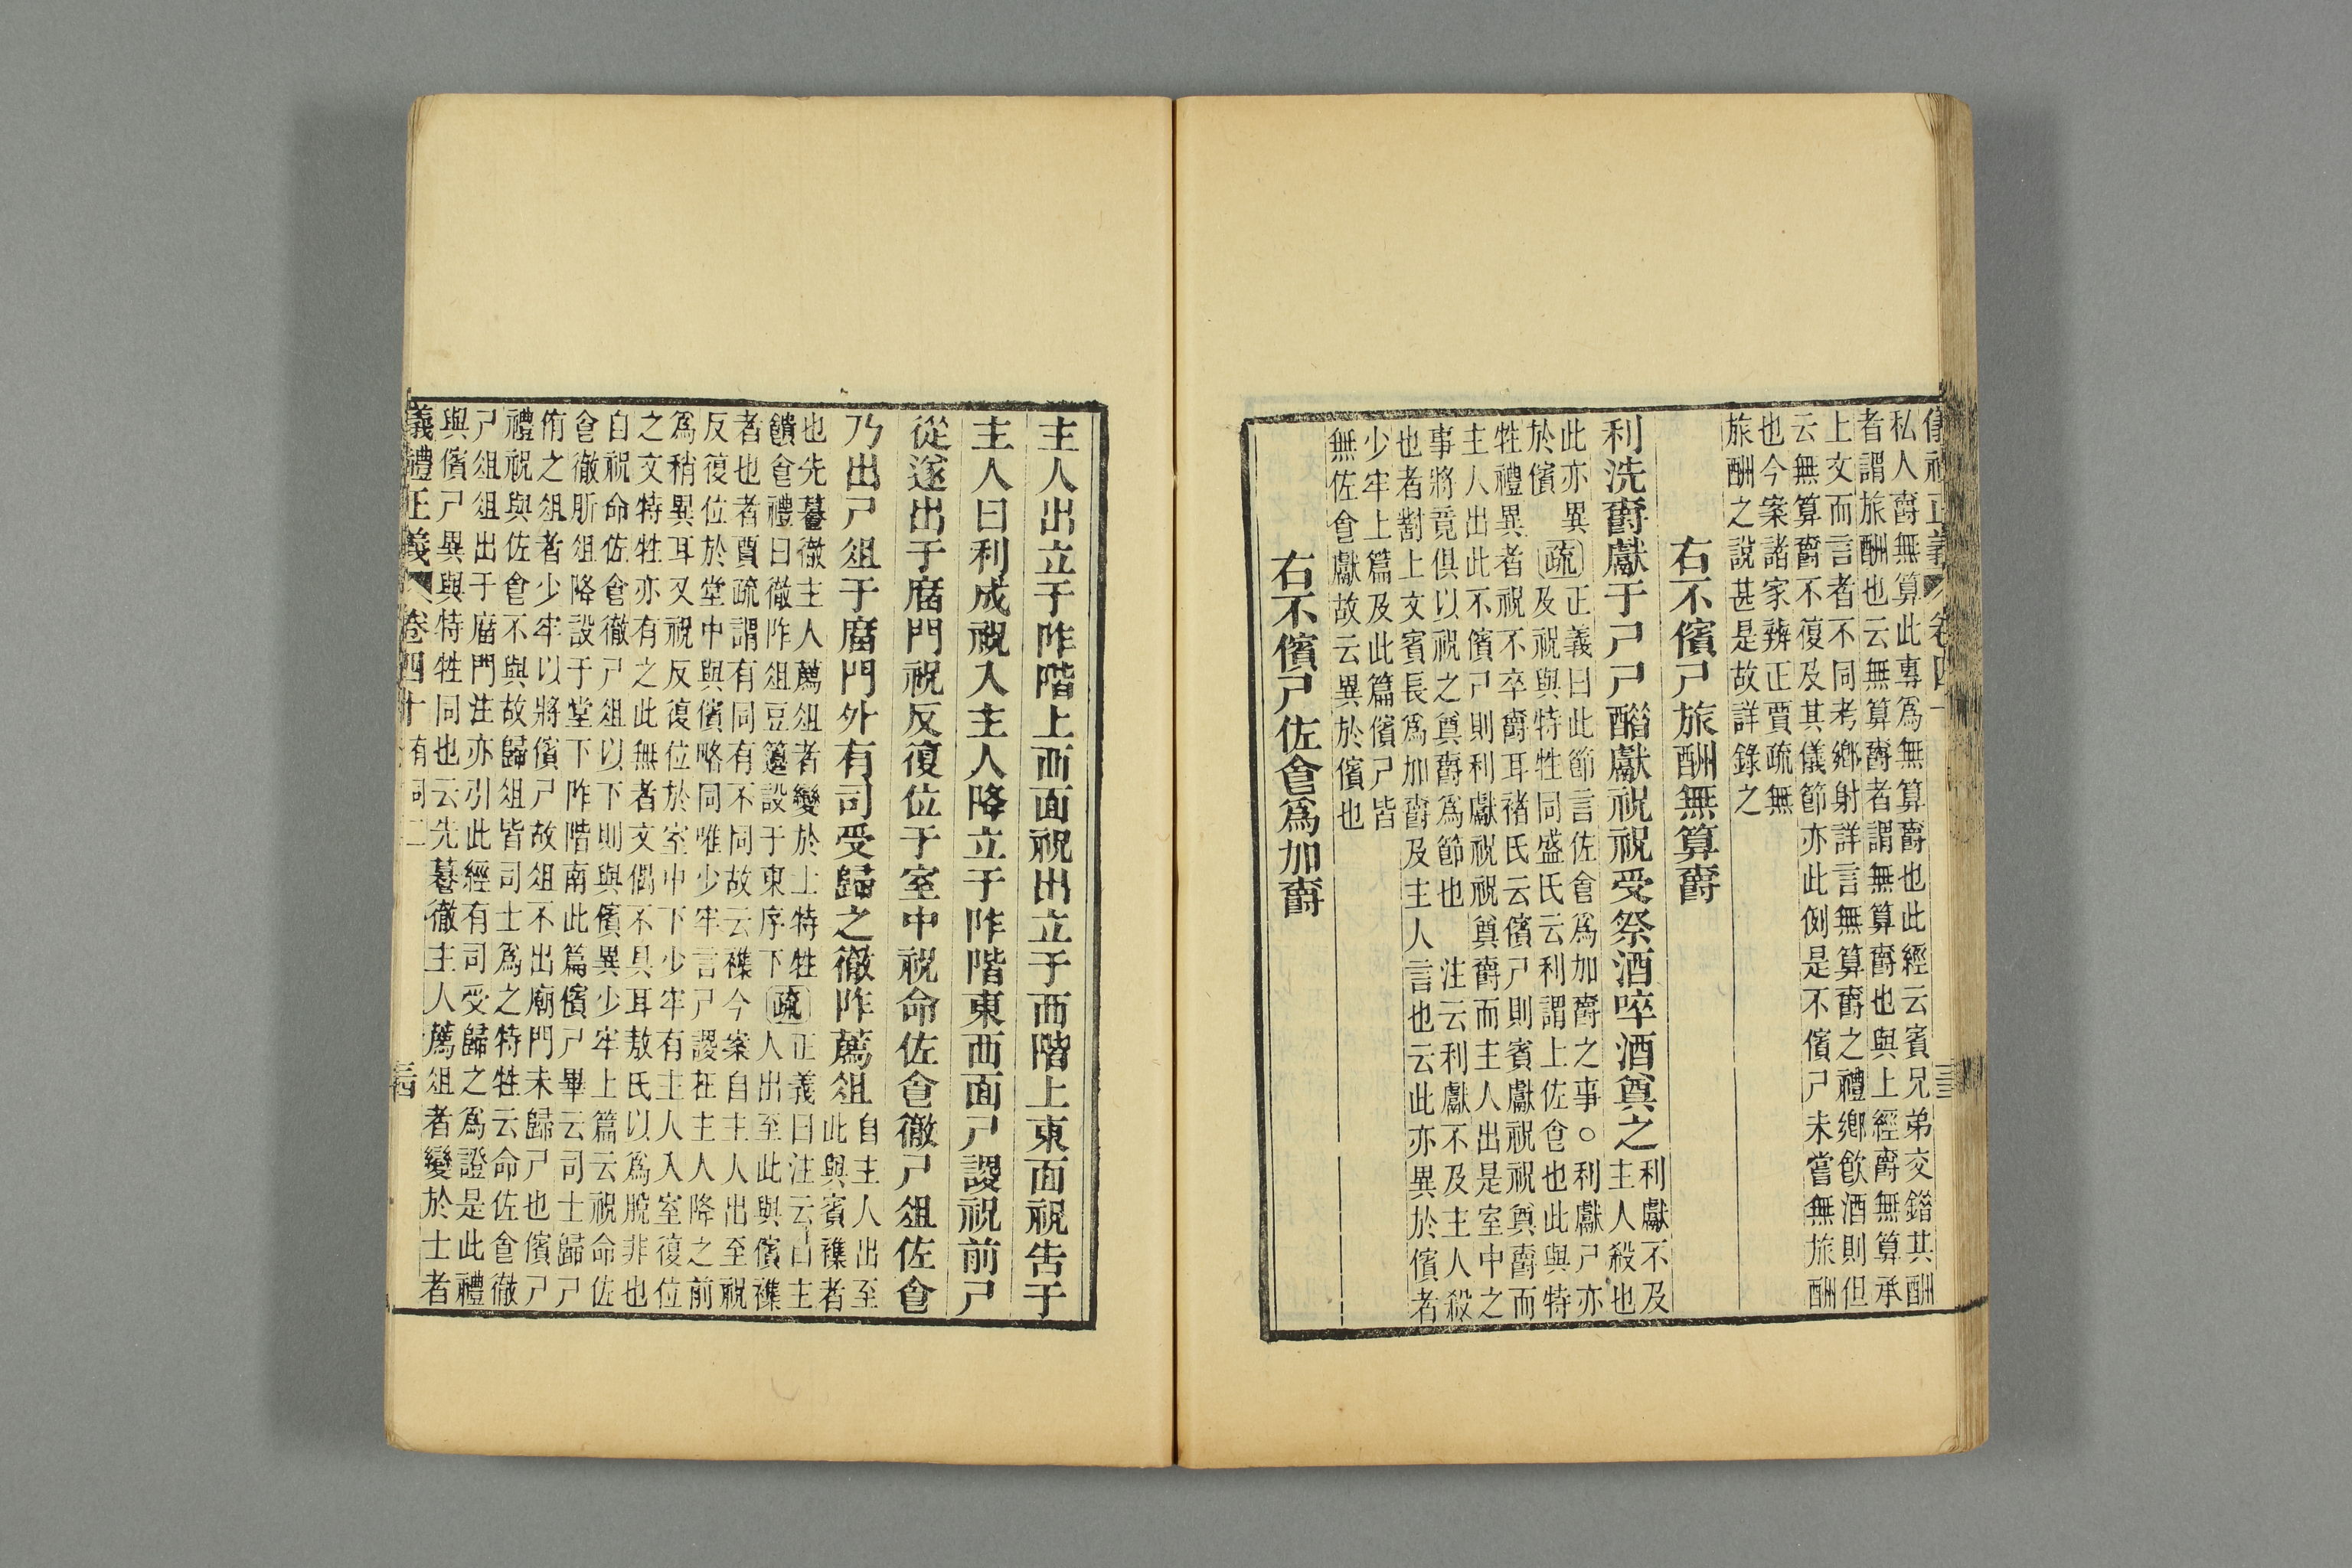 儀禮正義 卷四十
私人爵無算此專爲無算爵也此經云賓兄弟交錯其酬
者謂旅酬也云無算爵者謂無算爵也與上經爵無算承
上文而言者不同考鄉射詳言無算爵之禮鄉飮酒則但
云無算爵不復及其儀節亦此例是不儐尸未嘗無旅酬
也今案諸家辨正賈疏無
旅酬之說甚是故詳錄之
右不儐尸旅酬無算爵
利洗爵獻于尸尸酢獻祝祝受祭酒啐酒奠之
利獻不及
主人殺也
此亦異
於儐
疏
正義曰此節言佐食爲加爵之事○利獻尸亦
及祝與特牲同盛氏云利謂上佐食也此與特
牲禮異者祝不卒爵耳褚氏云儐尸則賓獻祝祝奠爵而
主人出此不儐尸則利獻祝祝奠爵而主人出是室中之
事將竟俱以祝之奠爵爲節也 注云利獻不及主人殺
也者對上文賓長爲加爵及主人言也云此亦異於儐者
少牢上篇及此篇儐尸皆
無佐食獻故云異於儐也
右不儐尸佐食爲加爵
主人出立于阼階上西面祝出立于西階上東面祝告于
主人曰利成祝入主人降立于阼階東西面尸謖祝前尸
從遂出于廟門祝反復位于室中祝命佐食徹尸俎佐食
乃出尸俎于廟門外有司受歸之徹阼薦俎
自主人出至
此與賓雜者
也先䬸徹主人薦俎者變於士特牲
饋食禮曰徹阼俎豆籩設于東序下
疏
正義曰注云自主
人出至此與儐雜
者也者賈疏謂有同有不同故云雜今案自主人出至祝
反復位於堂中與儐略同唯少牢言尸謖在主人降之前
爲稍異耳又祝反復位於室中下少牢有主人入室復位
之文特牲亦有之此無者文偶不具耳敖氏以爲脫非也
自祝命佐食徹尸俎以下則與儐異少牢上篇云祝命佐
食徹肵俎降設于堂下阼階南此篇儐尸畢云司士歸尸
侑之俎者少牢以將儐尸故俎不出廟門未歸尸也儐尸
禮祝與佐食不與故歸俎皆司士爲之特牲云命佐食徹
尸俎俎出于廟門注亦引此經有司受歸之爲證是此禮
與儐尸異與特牲同也云先䬸徹主人薦俎者變於士者
儀禮正義 卷四十 有司二